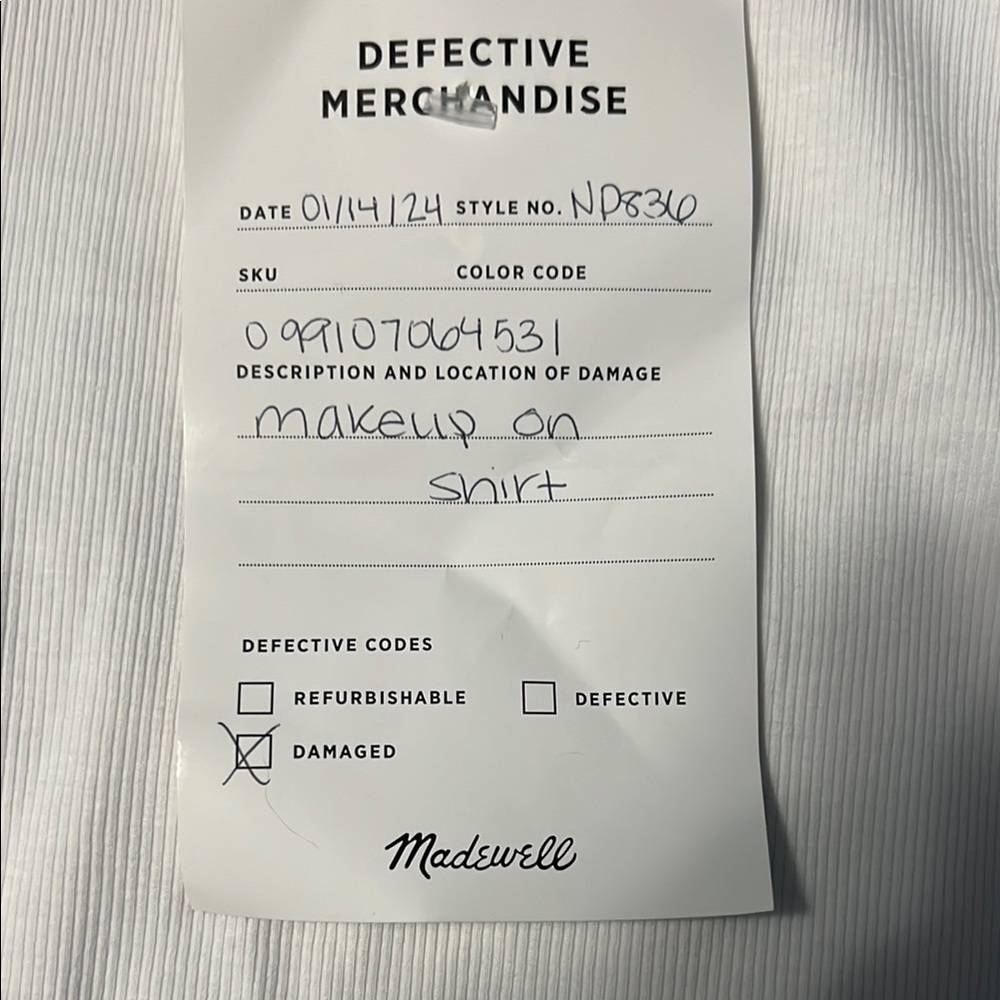 DEFECTIVE
MERCHANDISE
DATE 01/14/24 STYLE NO. NP836
SKU COLOR CODE
099107064531
DESCRIPTION AND LOCATION OF DAMAGE
makeup on
shirt
DEFECTIVE CODES
REFURBISHABLE DEFECTIVE
DAMAGED
Madewell